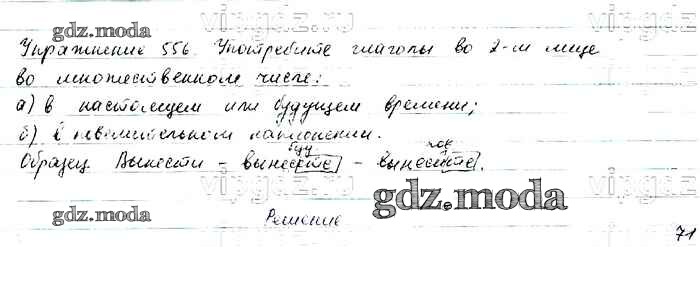 vipgdz vipgdz
gdz.moda
Упражнение 556. Употребите глаголы во 2-м лице
во множественном числе:
gdz.moda
а) в настоящем или будущем времени;
б) в повелительном наклонении.
буд пов
Образец Вынести - вынесете - вынесите.
vipgdz vipgdz
gdz.moda
gdz.moda
Решение
71